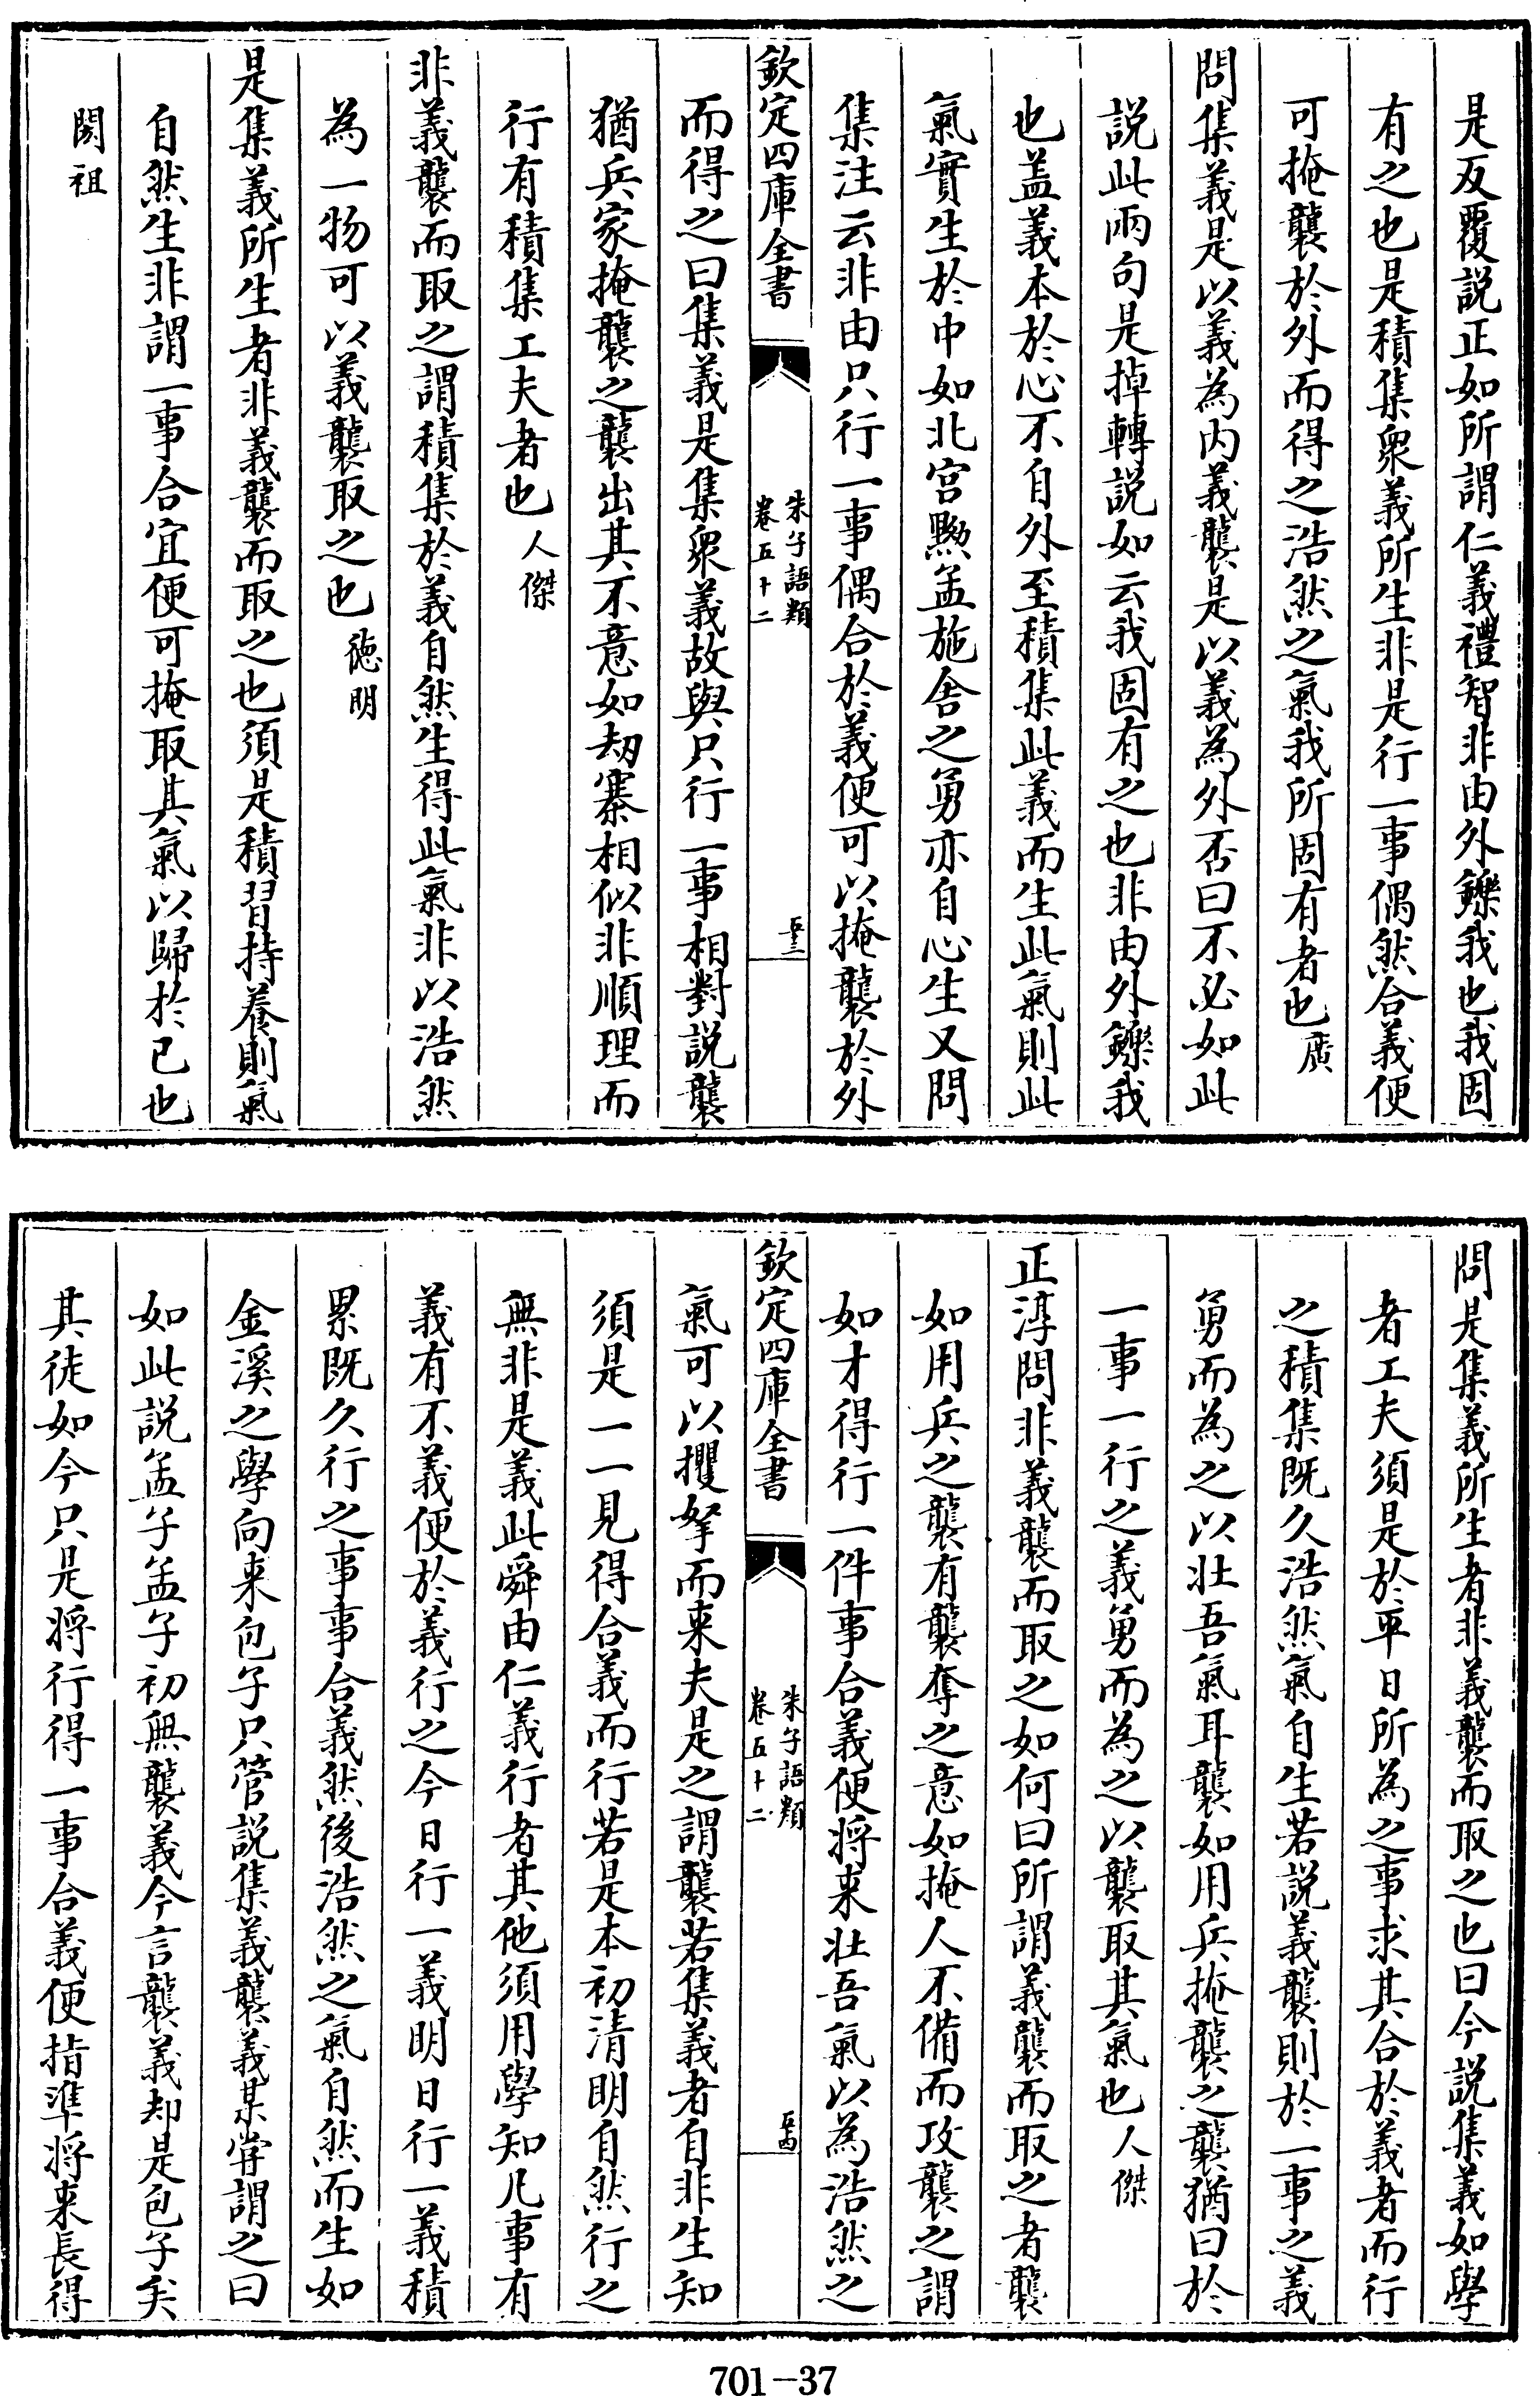 是反覆説正如所謂仁義禮智非由外鑠我也我固
有之也是積集衆義所生非是行一事偶然合義便
可掩襲於外而得之浩然之氣我所固有者也廣
問集義是以義為内義襲是以義為外否曰不必如此
説此兩句是掉轉説如云我固有之也非由外鑠我
也盖義本於心不自外至積集此義而生此氣則此
氣實生於中如北宫黝孟施舍之勇亦自心生又問
集注云非由只行一事偶合於義便可以掩襲於外
欽定四庫全書
朱子語類
卷五十二
五十三
而得之曰集義是集衆義故與只行一事相對説襲
猶兵家掩襲之襲出其不意如刼寨相似非順理而
行有積集工夫者也人傑
非義襲而取之謂積集於義自然生得此氣非以浩然
為一物可以義襲取之也徳明
是集義所生者非義襲而取之也須是積習持養則氣
自然生非謂一事合宜便可掩取其氣以歸於已也
閎祖
問是集義所生者非義襲而取之也曰今説集義如學
者工夫須是於平日所為之事求其合於義者而行
之積集既久浩然氣自生若説義襲則於一事之義
勇而為之以壯吾氣耳襲如用兵掩襲之襲猶曰於
一事一行之義勇而為之以襲取其氣也人傑
正淳問非義襲而取之如何曰所謂義襲而取之者襲
如用兵之襲有襲奪之意如掩人不備而攻襲之謂
如才得行一件事合義便將来壯吾氣以為浩然之
欽定四庫全書
朱子語類
卷五十二
五十四
氣可以攫拏而来夫是之謂襲若集義者自非生知
須是一一見得合義而行若是本初清明自然行之
無非是義此舜由仁義行者其他須用學知凡事有
義有不義便於義行之今日行一義明日行一義積
累既久行之事事合義然後浩然之氣自然而生如
金溪之學向来包子只管説集義襲義某嘗謂之曰
如此説孟子孟子初無襲義今言襲義却是包子矣
其徒如今只是將行得一事合義便指準將来長得
701-37